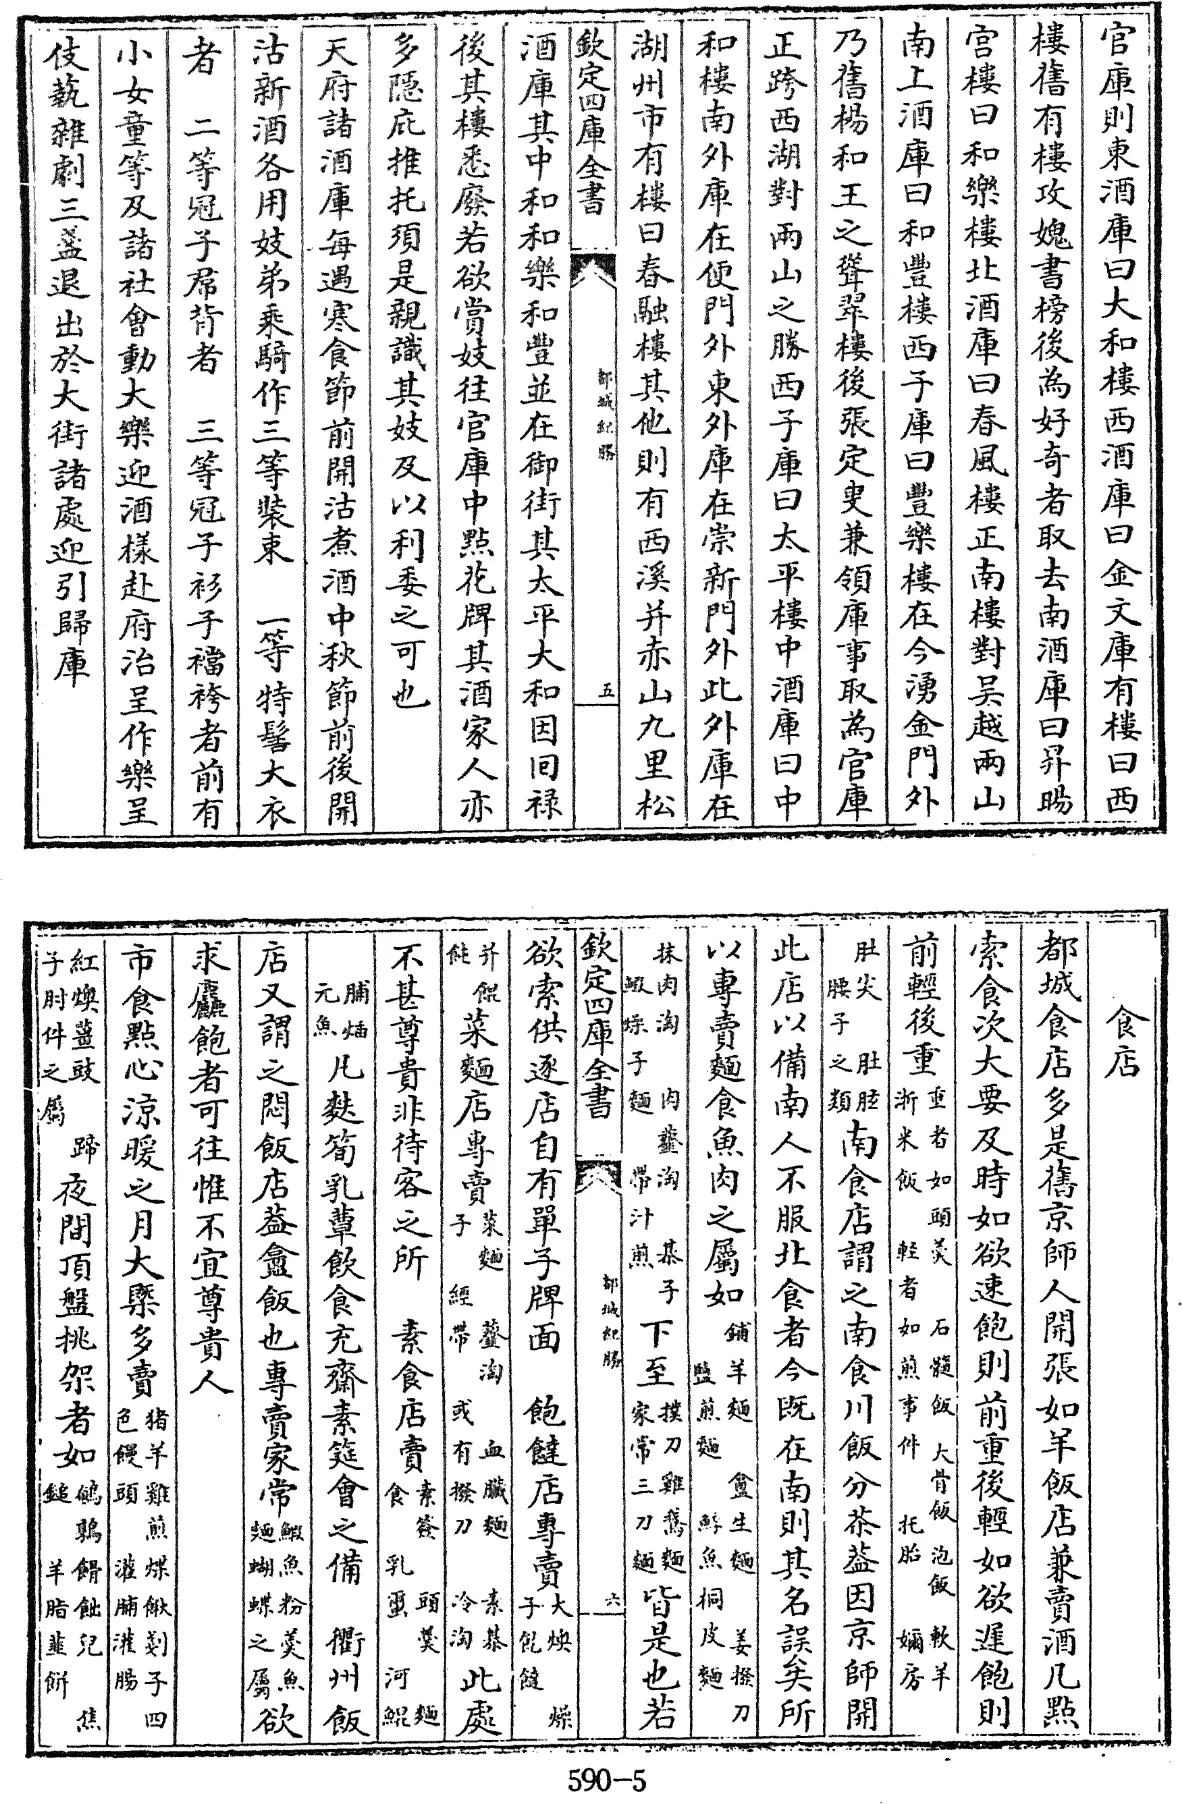 官庫則東酒庫曰大和樓西酒庫曰金文庫有樓曰西
樓舊有樓攻媿書榜後為好奇者取去南酒庫曰昇暘
宫樓曰和樂樓北酒庫曰春風樓正南樓對吴越兩山
南上酒庫曰和豐樓西子庫曰豐樂樓在今湧金門外
乃舊楊和王之聳翠樓後張定叟兼領庫事取為官庫
正跨西湖對兩山之勝西子庫曰太平樓中酒庫曰中
和樓南外庫在便門外東外庫在崇新門外此外庫在
湖州市有樓曰春融樓其他則有西溪并赤山九里松
欽定四庫全書
都城紀勝
五
酒庫其中和和樂和豐並在御街其太平大和因回禄
後其樓悉廢若欲賞妓往官庫中點花牌其酒家人亦
多隱庇推托須是親識其妓及以利委之可也
天府諸酒庫每遇寒食節前開沽煮酒中秋節前後開
沽新酒各用妓弟乘騎作三等裝束　一等特髻大衣
者　二等冠子裙背者　三等冠子衫子襠袴者前有
小女童等及諸社會動大樂迎酒樣赴府治呈作樂呈
伎藝雜劇三盞退出於大街諸處迎引歸庫
食店
都城食店多是舊京師人開張如羊飯店兼賣酒凡點
索食次大要及時如欲速飽則前重後輕如欲遲飽則
前輕後重重者如頭羹　石髓飯　大骨飯　泡飯　軟羊　浙米飯　輕者如煎事件　托胎　嬭房
肚尖　肚胘　腰子之類南食店謂之南食川飯分茶葢因京師開
此店以備南人不服北食者今既在南則其名誤矣所
以專賣麵食魚肉之屬如鋪羊麵　盦生麵　姜撥刀　鹽煎麵　鯚魚桐皮麵
抹肉淘　肉虀淘　棊子　蝦燥子麵　帶汁煎下至撲刀雞鵞麵　家常三刀麵皆是也若
欽定四庫全書
都城紀勝
六
欲索供逐店自有單子牌面　飽饆店專賣大燠　燥子飽饆
并餛飩菜麵店專賣菜麵　虀淘　血臟麵　素棊子　經帶　或有撥刀　冷淘此處
不甚尊貴非待客之所　素食店賣素簽　頭羹　麵食　乳蠒　河鯤
脯𤆵　元魚凡麩筍乳蕈飲食充齋素筵會之備　衢州飯
店又謂之悶飯店葢盦飯也專賣家常鰕魚粉羹魚麵蝴蝶之屬欲
求麤飽者可往惟不宜尊貴人
市食點心涼暖之月大槩多賣猪羊雞煎煠　𩟁剗子　四色饅頭　灌脯　灌腸
紅燠薑豉　蹄子肘件之屬夜間頂盤挑架者如鵪鶉餶飿兒　焦鎚　羊脂韮餅
590-5